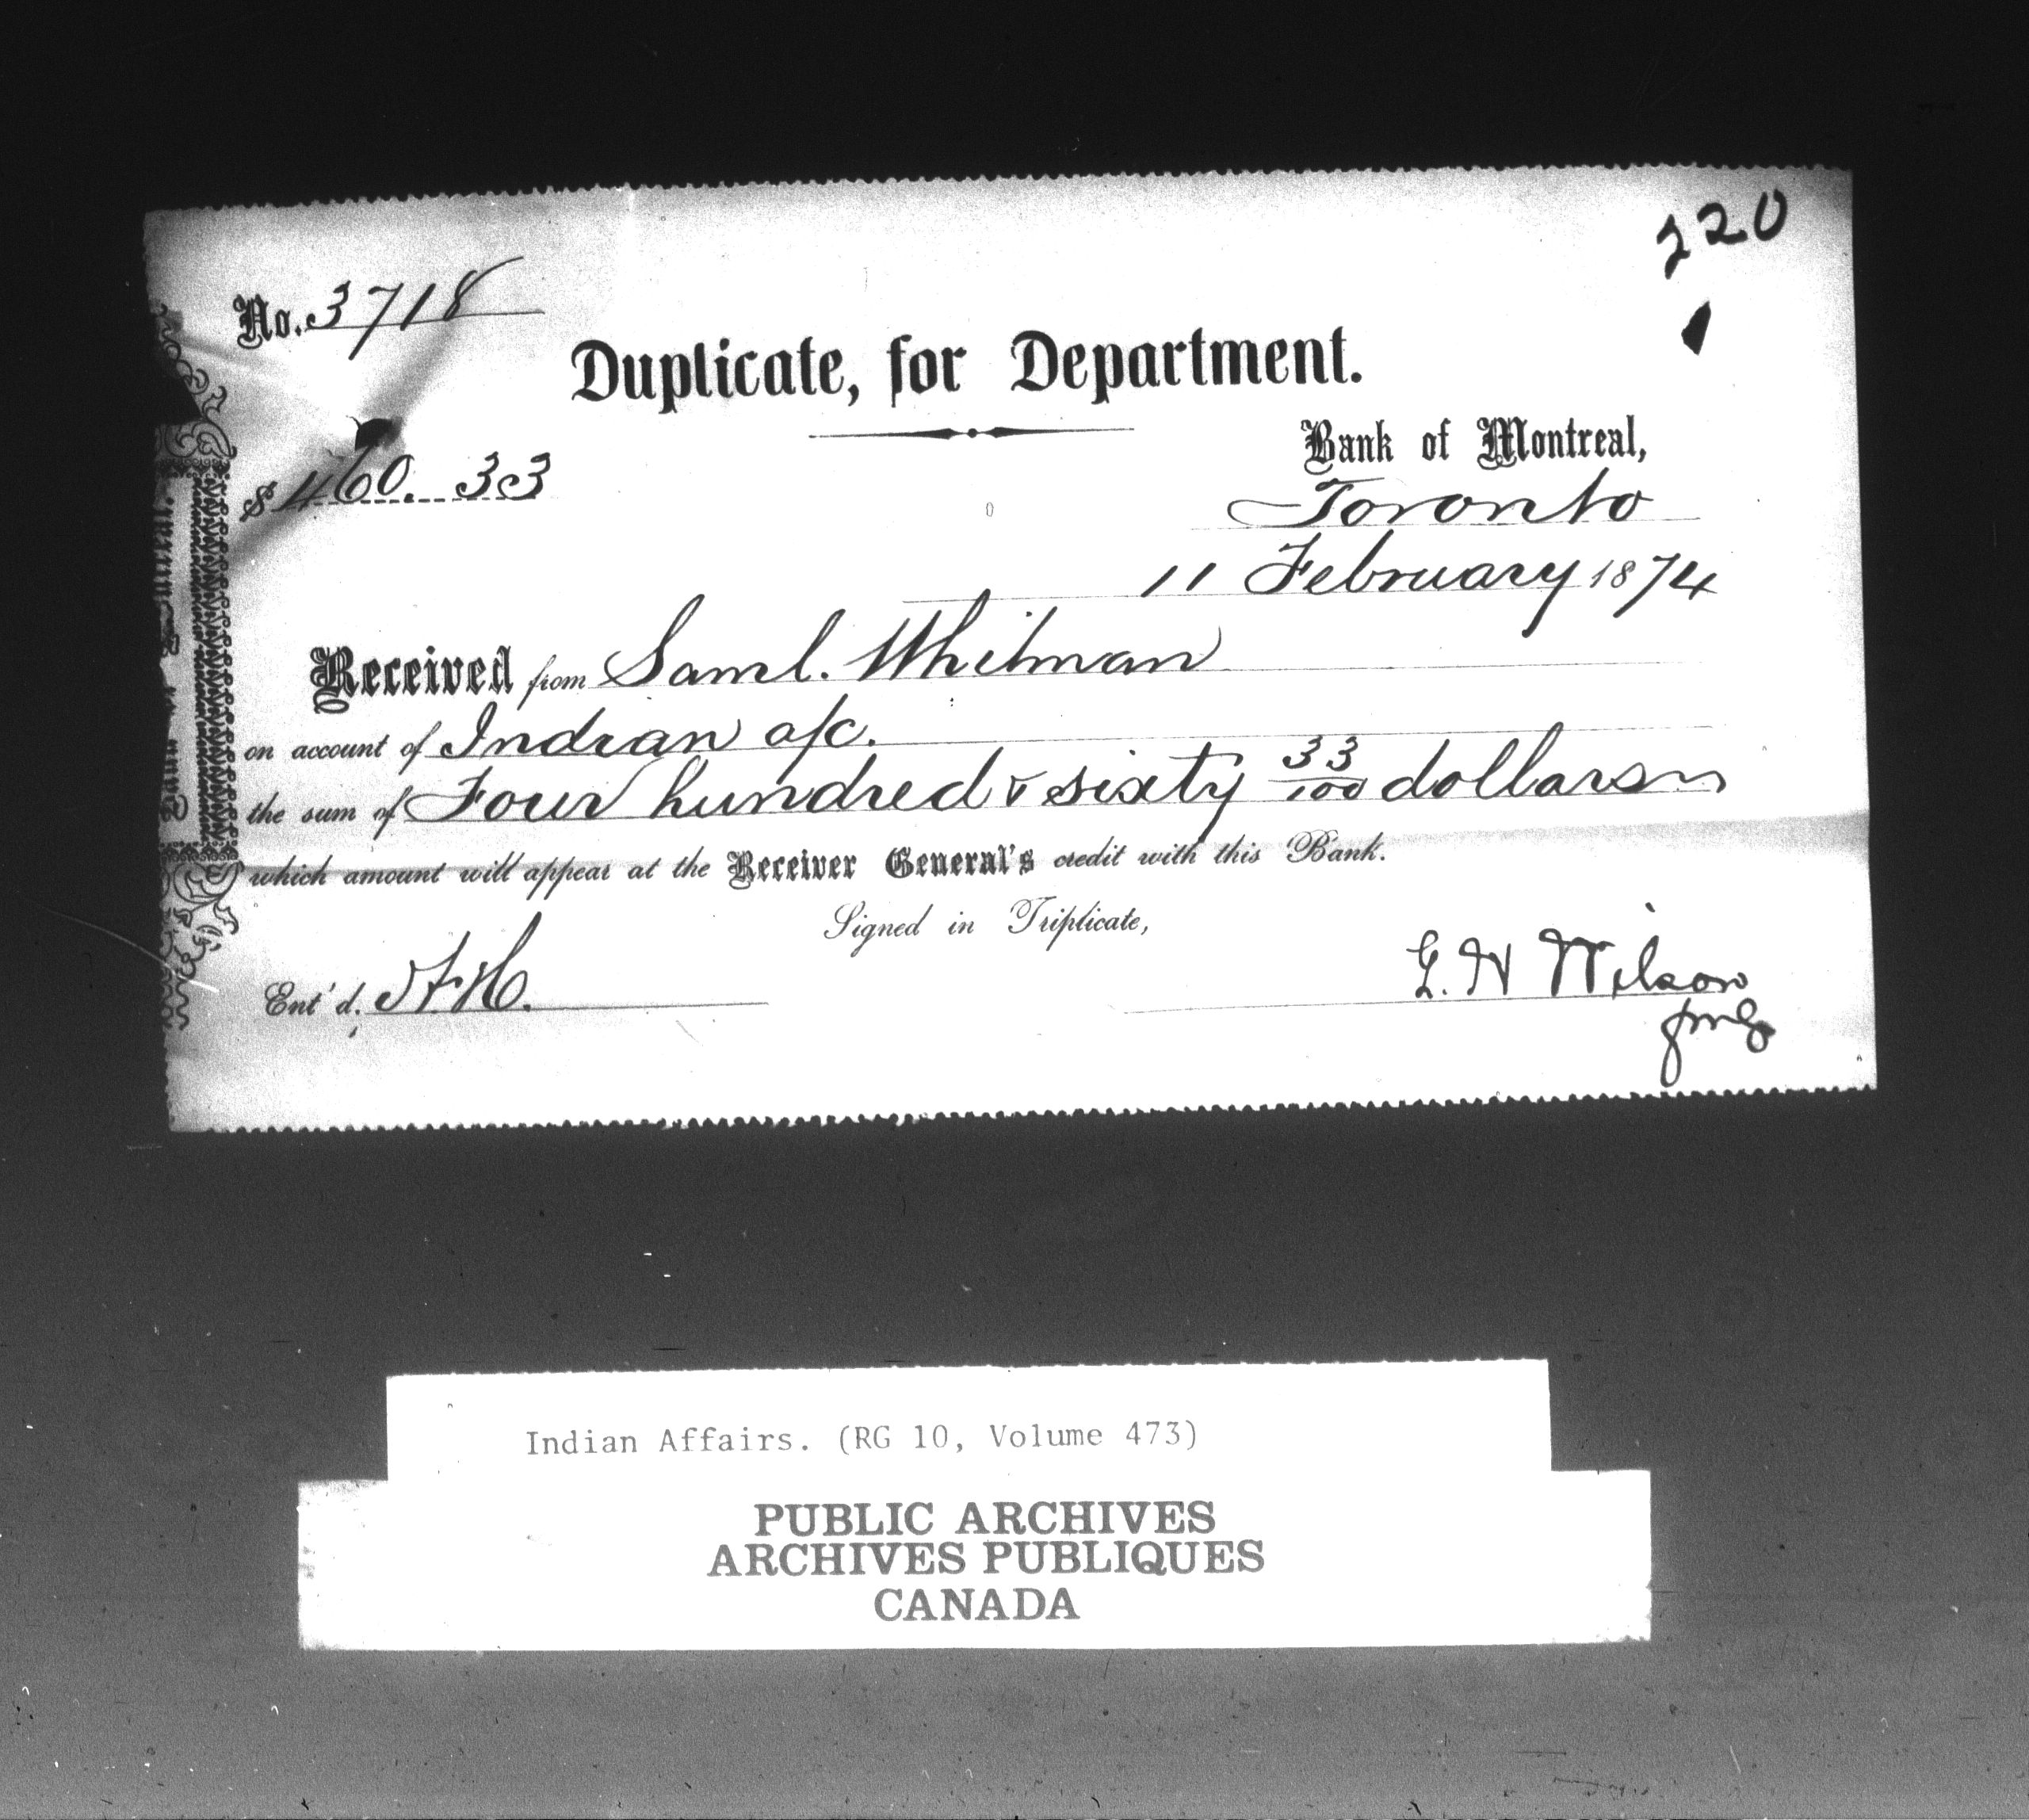 220
No. 3718
Duplicate, for Department.
Bank of Montreal,
$460. 33
Toronto
11 February 1874
Received from Saml. Whitman
on account of Indian a/c.
the sum of Four hundred & sixty 33/100 dollars
which amount will appear at the Receiver General's credit with this Bank.
Signed in Triplicate,
Ent'd.
G. H Wilson
Indian Affairs. (RG 10, Volume 473)
PUBLIC ARCHIVES
ARCHIVES PUBLIQUES
CANADA